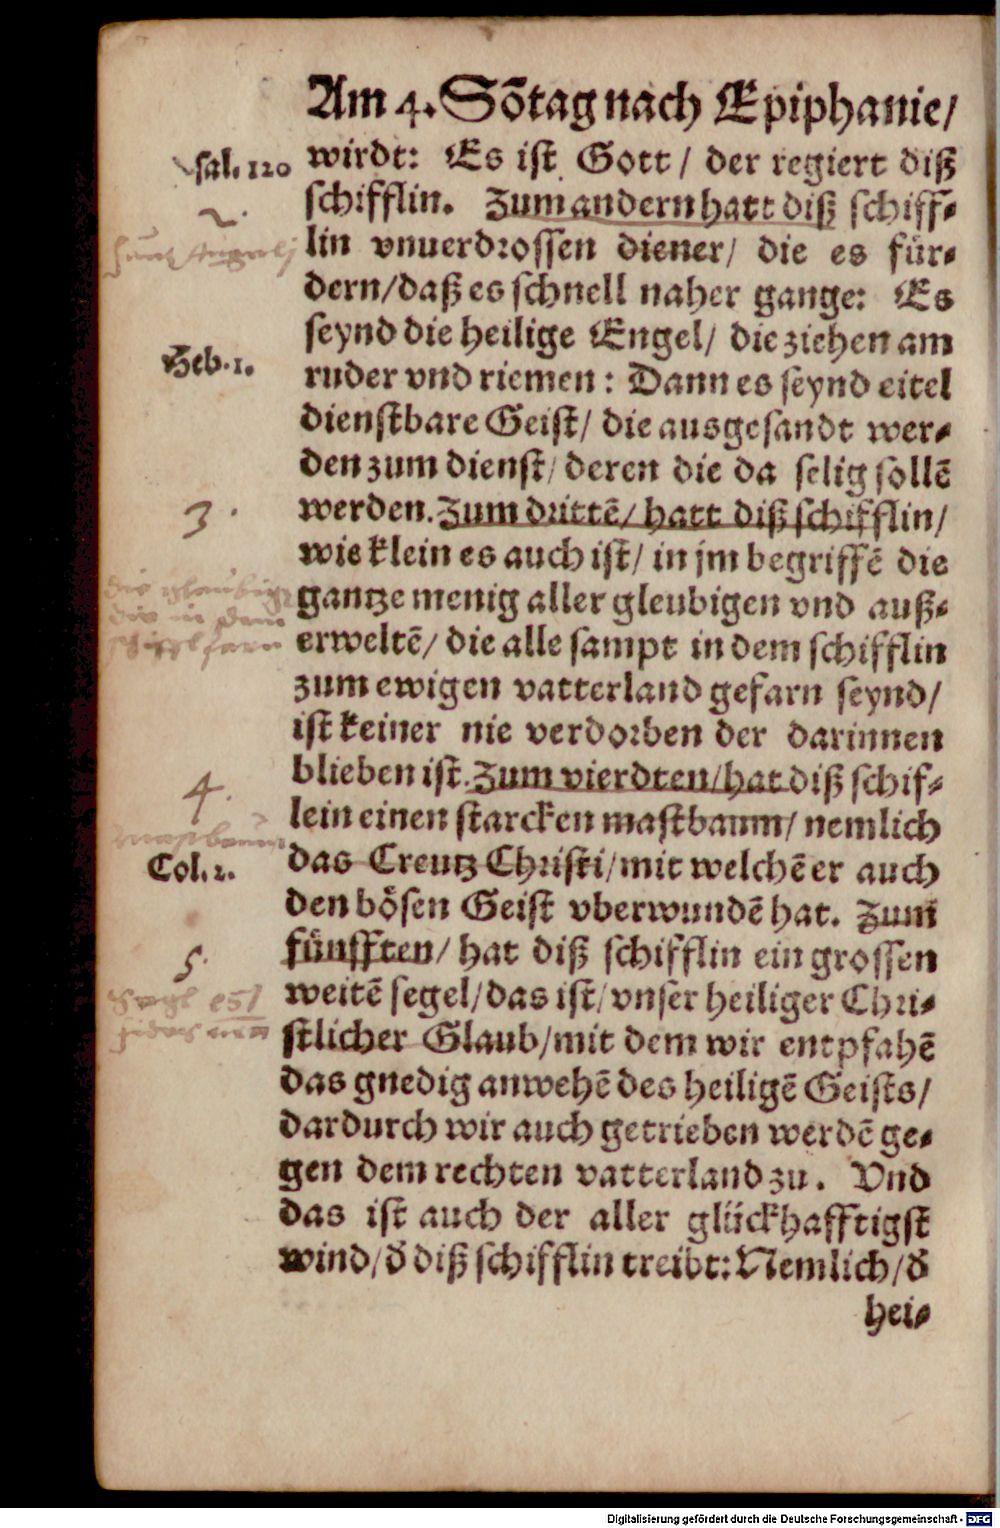 Am 4. Sõtag nach Epiphanie/
sal. 120
wirdt: Es ist Gott / der regiert diß
schifflin. Zum andern hatt diß schiff-
2.
lin vnuerdrossen diener/ die es für-
dern/daß es schnell naher gange: Es
seynd die heilige Engel/ die ziehen am
Heb. 1.
ruder vnd riemen: Dann es seynd eitel
dienstbare Geist/ die ausgesandt wer-
den zum dienst/ deren die da selig sollẽ
werden. Zum drittẽ/ hatt diß schifflin/
3.
wie klein es auch ist/ in jm begriffẽ die
gantze menig aller gleubigen vnd auß-
die glaubige
die in dem
schiffl farn
erweltẽ/ die alle sampt in dem schifflin
zum ewigen vatterland gefarn seynd/
ist keiner nie verdorben der darinnen
blieben ist. Zum vierdten/hat diß schif-
4.
lein einen starcken mastbaum/ nemlich
mastbaum
das Creutz Christi/mit welchẽ er auch
Col. 2.
den bösen Geist vberwundẽ hat. Zum
fünfften/ hat diß schifflin ein grossen
5.
weitẽ segel/das ist/ vnser heiliger Chri-
Segl est
stlicher Glaub/mit dem wir entpfahẽ
das gnedig anwehẽ des heiligẽ Geists/
dardurch wir auch getrieben werdẽ ge-
gen dem rechten vatterland zu. Vnd
das ist auch der aller glückhafftigst
wind/d̃ diß schifflin treibt: Nemlich/d̃
hei-
Digitalisierung gefördert durch die Deutsche Forschungsgemeinschaft - DFG